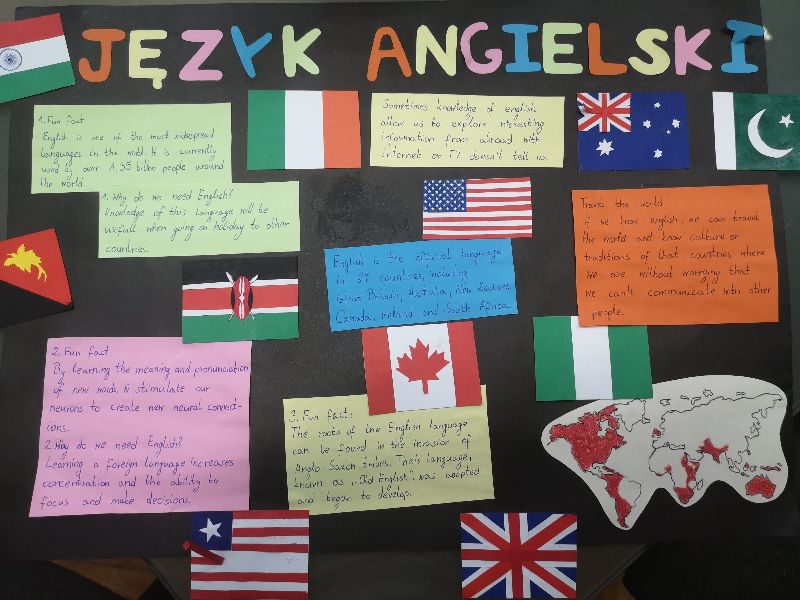 JĘZYK ANGIELSKI
1. Fun fact
English is one of the most widespread
languages in the world. It is currently
used by over 1,35 billion people around
the world.
Sometimes knowledge of english
allow us to explore interesting
information from abroad with
internet or TV doesn't tell us.
1. Why do we need English?
knowledge of this language will be
usefull when going on holiday to other
countries.
Travel the world
if we know english, we can travel
the world and know culture or
traditions of that countries where
we are without worrying that
we can't communicate with other
people.
English is the official language
in 57 countries, including
Great Britain, Australia, New Zealand,
Canada, Ireland and South Africa.
2. Fun fact
By learning the meaning and pronunciation
of new words, stimulate our
neurons to create new neural connect-
ions.
2. Why do we need English?
Learning a foreign language increases
concentration and the ability to
focus and make decisions.
3. Fun fact:
The roots of the English language
can be found in the invasion of
Anglo-Saxon tribes. Their language,
known as „Old English", was adopted
and began to develop.